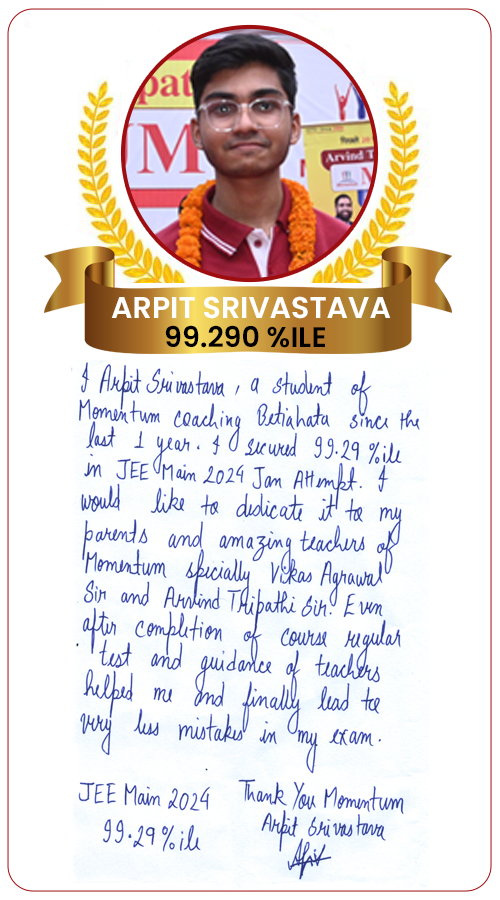 pat
UM
Arvind T
M
ARPIT SRIVASTAVA
99.290 %ILE
I Arpit Srivastava, a student of
Momentum coaching Betiahata since the
last 1 year. I secured 99.29 %ile
in JEE Main 2024 Jan Attempt. I
would like to dedicate it to my
parents and amazing teachers of
Momentum specially Vikas Agrawal
Sir and Arvind Tripathi Sir. Even
after completion of course regular
test and guidance of teachers
helped me and finally lead to
very less mistakes in my exam.
JEE Main 2024
99.29 %ile
Thank You Momentum
Arpit Srivastava
Arpit